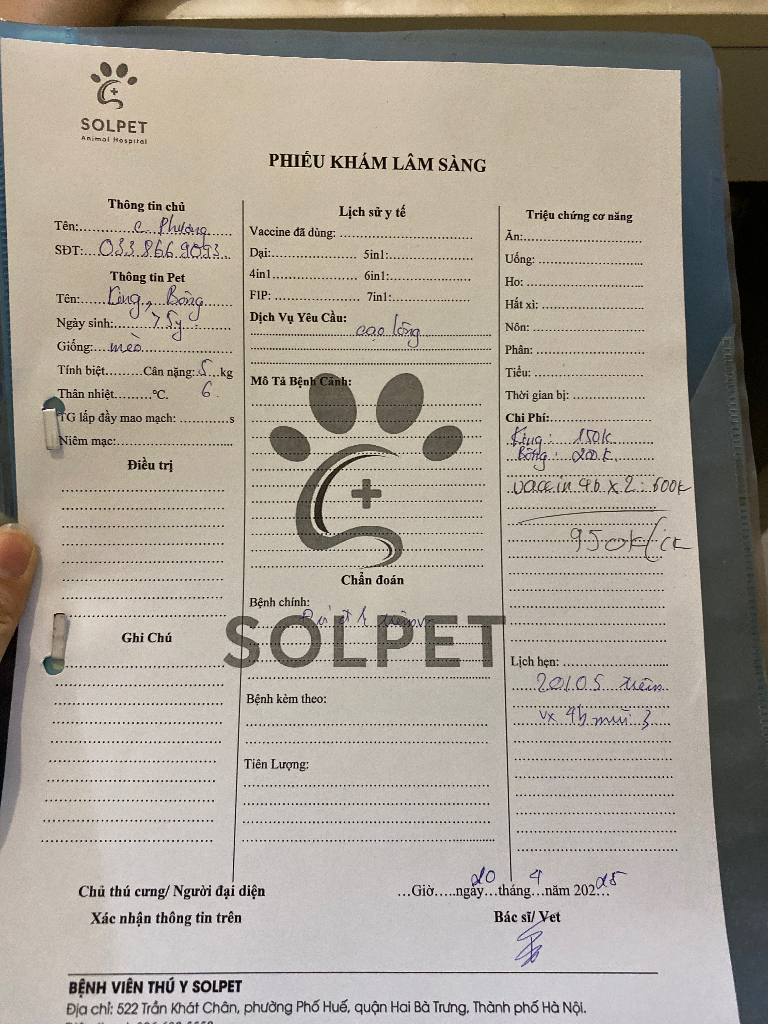 SOLPET
Animal Hospital
PHIẾU KHÁM LÂM SÀNG
Thông tin chủ
Tên: c Phương
SĐT: 033.866.9093
Thông tin Pet
Tên: King, Bông
Ngày sinh: > 5y
Giống: mèo
Tính biệt........Cân nặng: 5 kg
Thân nhiệt........°C. 6
TG lấp đầy mao mạch: ............s
Niêm mạc:
Điều trị
Ghi Chú
Lịch sử y tế
Vaccine đã dùng:
Dại: 5in1:
4in1 6in1:
FIP: 7in1:
Dịch Vụ Yêu Cầu:
cạo lông
Mô Tả Bệnh Cảnh:
Chẩn đoán
Bệnh chính:
SOLPET
Bệnh kèm theo:
Tiên Lượng:
Triệu chứng cơ năng
Ăn:
Uống:
Ho:
Hắt xì:
Nôn:
Phân:
Tiểu:
Thời gian bị:
Chi Phí:
King: 150k
Bông: 200k
vaccin 4b x 2: 600k
950k/ck
Lịch hẹn:
20/05 tiêm
vx 4b mũi 3
Chủ thú cưng/ Người đại diện
Xác nhận thông tin trên
...Giờ.....ngày 20 tháng 4 năm 202 25
Bác sĩ/ Vet
BỆNH VIỆN THÚ Y SOLPET
Địa chỉ: 522 Trần Khát Chân, phường Phố Huế, quận Hai Bà Trưng, Thành phố Hà Nội.